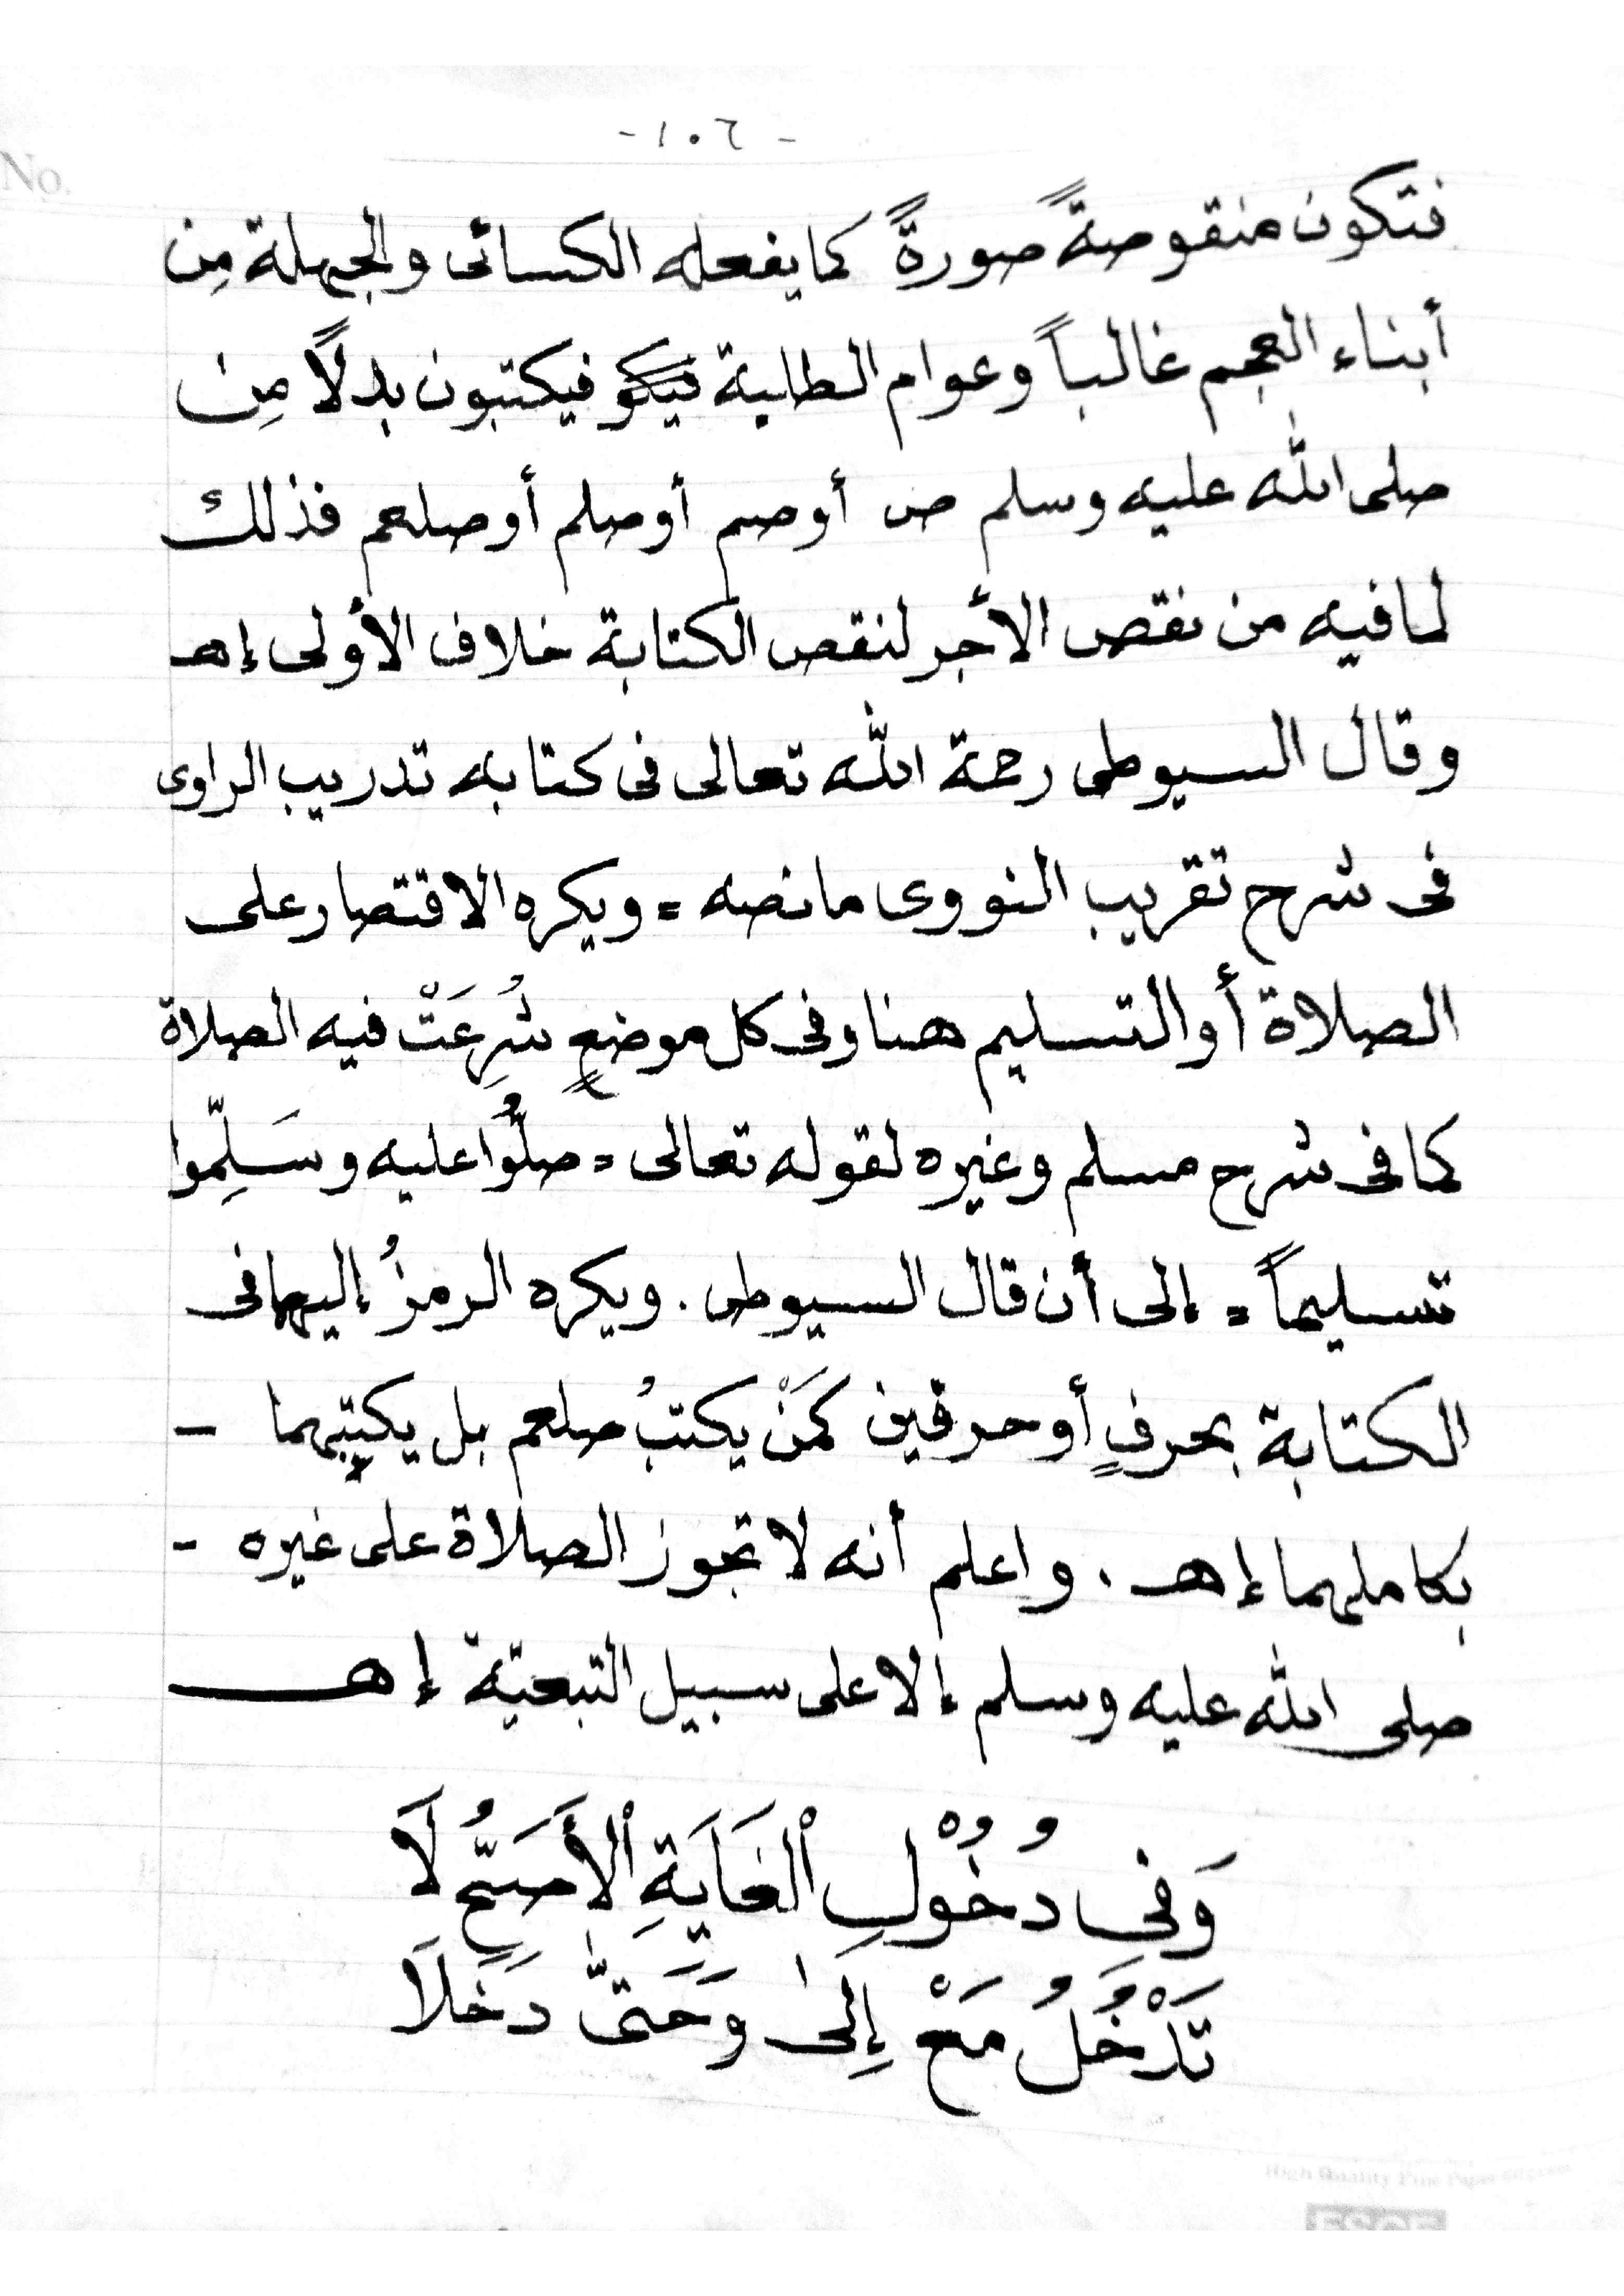 -١٠٦-
No.
فتكون منقوصةً صورةً كما يفعله الكسائى والجهلة مِن
أبناء العجم غالباً وعوام الطلبة فيكتبون بدلًا مِن
صلى الله عليه وسلم ص أوصم أوصلم أوصلعم فذلك
لما فيه من نقص الأجر لنقص الكتابة خلاف الأولى إهـ
وقال السيوطى رحمة الله تعالى فى كتابه تدريب الراوى
فى شرح تقريب النووى مانصه = ويكره الاقتصار على
الصلاة أو التسليم هنا وفى كل موضعٍ شُرِعَتْ فيه الصلاة
كما فى شرح مسلم وغيره لقوله تعالى = صلُّوا عليه وسَلِّموا
تسليماً = إلى أن قال السيوطى . ويكره الرمزُ إليهما فى
الكتابة بحرفٍ أو حرفين كمَنْ يكتبُ صلعم بل يكتبهما -
بكاملهما إهـ . واعلم أنه لا تجوز الصلاة على غيره -
صلى الله عليه وسلم إلا على سبيل التبعيّة إهـ
وَفِى دُخُوْلِ ٱلْغَايَةِ ٱلْأَصَحُّ لَا
تَدْخُلُ مَعْ إِلىٰ وَحَتىّٰ دَخَلَا
High Quality Fine Paper